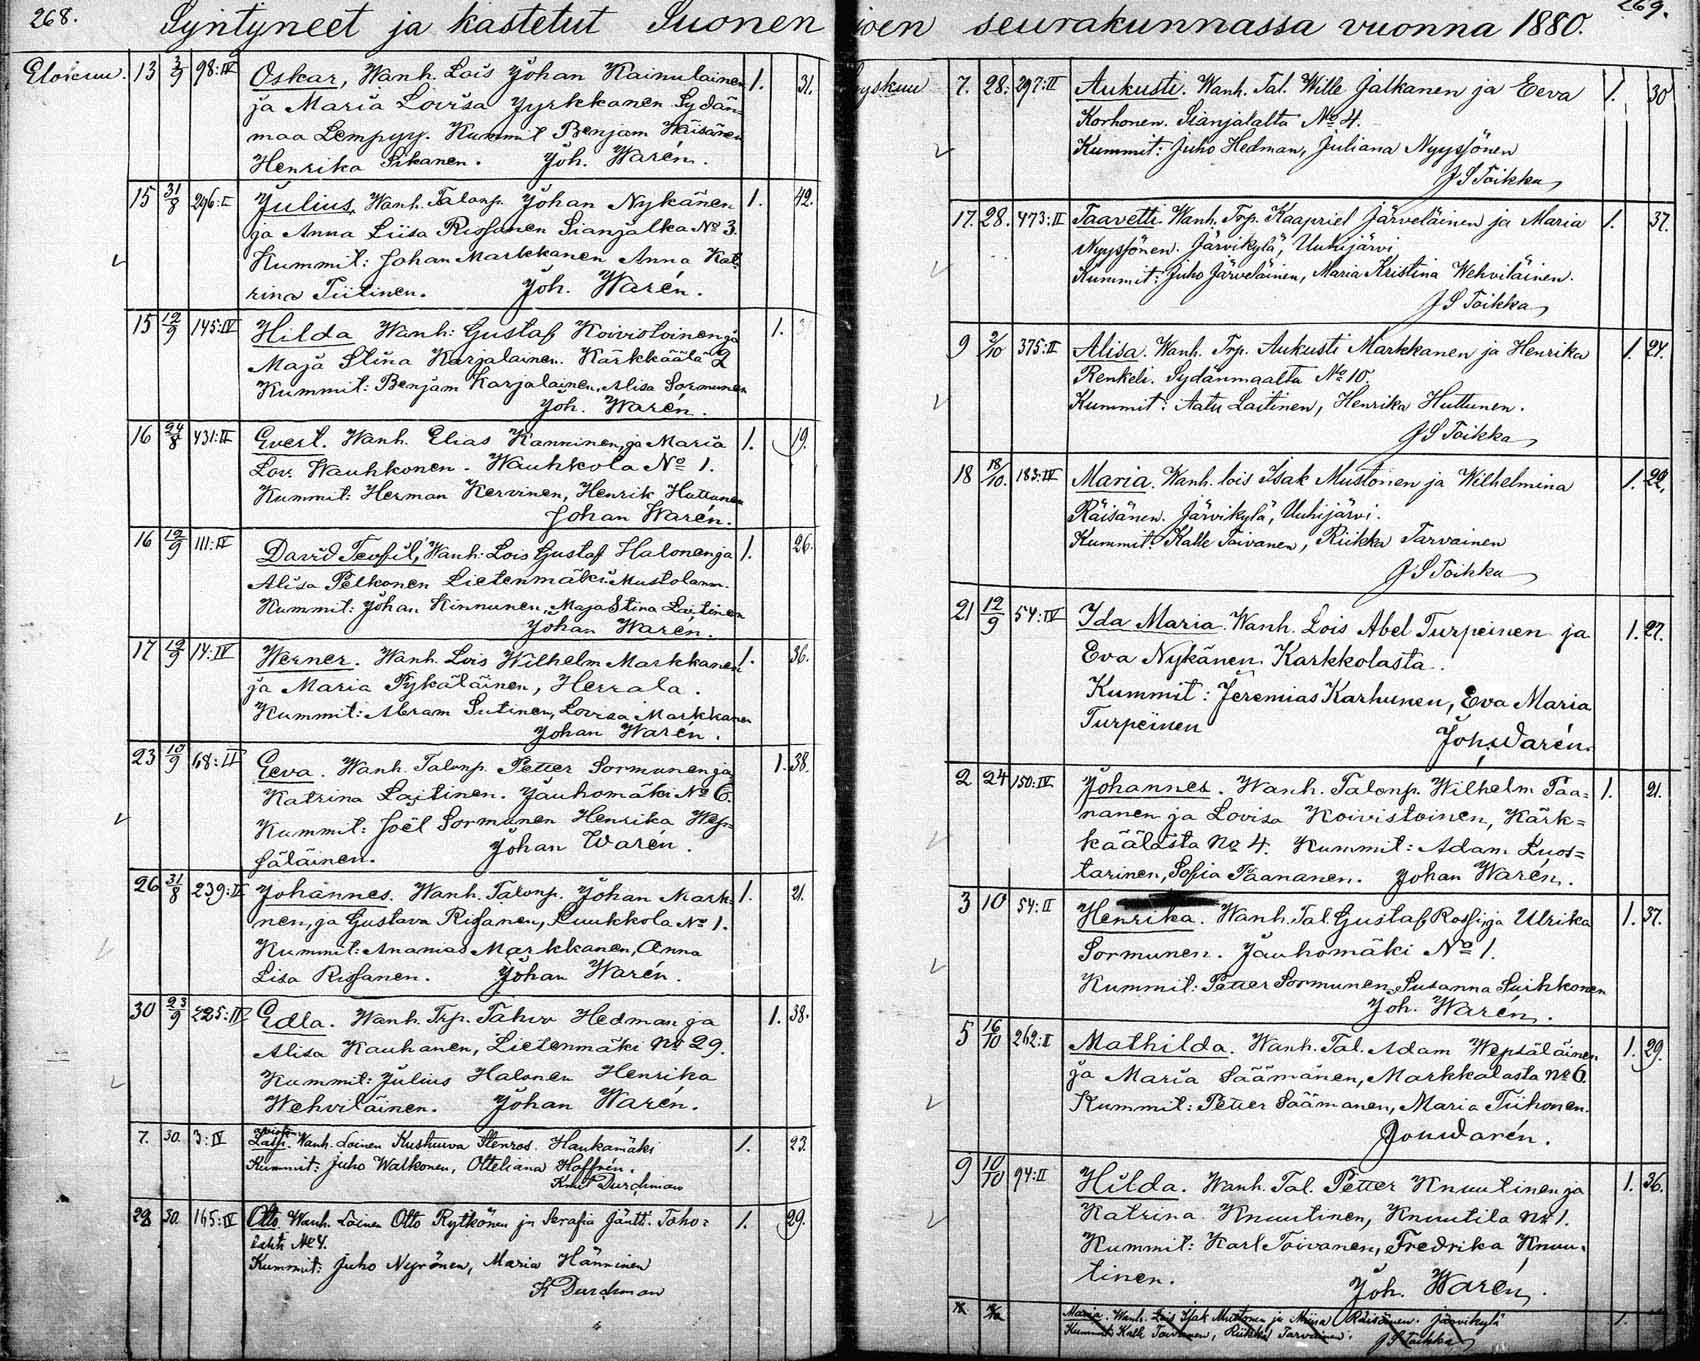 268. Syntyneet ja kastetut Suonen
Elokuu. 13 3/9 98:IV Oskar, Wanh. Lois Johan Kainulainen 1. 31.
ja Maria Lovisa Jyrkkanen Sydän
maa Lempyy. Kummit Benjam Väisänen
Henrika Pikanen. Joh. Warén.
15 31/8 296:II Julius, Wanh. Talonp. Johan Nykänen 1. 42.
ja Anna Liisa Rissanen Sianjalka No 3.
Kummit: Johan Markkanen Anna Kat-
rina Tiitinen. Joh. Warén.
15 12/9 145:IV Hilda Wanh: Gustaf Koivistoinen ja 1.
Maja Stina Karjalainen. Kärkkäälä 2
Kummit: Benjam Karjalainen, Alisa Sormunen
Joh. Warén.
16 24/8 431:II Evert. Wanh. Elias Kanninen, ja Maria 1. 19.
Lov. Wauhkonen. Wauhkola No 1.
Kummit: Herman Kervinen, Henrik Huttunen
Johan Warén.
16 12/9 111:IV David Teofil, Wanh: Lois Gustaf Halonen ja 1. 26.
Alisa Pelkonen Lietenmäki Mustolanm.
Kummit: Johan Kinnunen, Maja Stina Laitinen
Johan Warén.
17 19/9 14:IV Werner. Wanh. Lois Wilhelm Markkanen 1. 36.
ja Maria Pykäläinen, Herrala.
Kummit: Abram Sutinen, Lovisa Markkanen
Johan Warén.
23 10/9 68:II Eeva. Wanh. Talonp. Petter Sormunen ja 1. 38.
Katrina Laitinen. Jauhomäki No 6.
Kummit: Joël Sormunen Henrika Wep-
säläinen. Johan Warén.
26 31/8 239:II Johannes. Wanh. Talonp. Johan Mark- 1. 21.
nen, ja Gustava Rissanen, Luukkola No 1.
Kummit: Ananias Markkanen, Anna
Lisa Rissanen. Johan Warén.
30 23/9 225:IV Edla. Wanh. Trp. Tahvo Hedman ja 1. 38.
Alisa Kauhanen, Lietenmäki No 29.
Kummit: Julius Halonen Henrika
Wehviläinen. Johan Warén.
7. 30. 3:IV Lassi. Wanh. Loinen Kustuuva Stenros. Haukamäki 1. 23.
Kummit: Juho Walkonen, Otteliana Hoffrén.
Durchman
28 30. 165:IV Otto. Wanh. Loinen Otto Rytkönen ja Serafia Jäntti. Toho- 1. 29.
lahti No 4.
Kummit: Juho Nyrönen, Maria Hänninen
K Durchman
joen seurakunnassa vuonna 1880. 269.
Syyskuu 7. 28. 297:II Aukusti. Wanh. Tal. Wille Jalkanen ja Eeva 1. 30
Korhonen. Sianjalalta No 4.
Kummit: Juho Hedman, Juliana Nyyssönen
J S Toikka
17. 28. 473:II Taavetti. Wanh. Trp. Kaapriel Järveläinen ja Maria 1. 37.
Nyyssönen. Järvikylä, Uuhijärvi
Kummit: Juho Järveläinen, Maria Kristina Wehviläinen.
J S Toikka
9 2/10 375:II Alisa. Wanh. Trp. Aukusti Markkanen ja Henrika 1. 24.
Renkeli. Sydänmaalta No 10.
Kummit: Aatu Laitinen, Henrika Huttunen.
J S Toikka
18 18/10. 183:IV Maria. Wanh. lois Isak Mustonen ja Wilhelmina 1. 22.
Räisänen. Järvikylä, Uuhijärvi.
Kummit: Kalle Toivanen, Riikka Tarvainen
J S Toikka
21 12/9 54:IV Ida Maria. Wanh. Lois Abel Turpeinen ja 1. 27.
Eva Nykänen. Karkkolasta.
Kummit: Jeremias Karhunen, Eva Maria
Turpeinen Joh. Warén.
2 24 150:IV Johannes. Wanh. Talonp. Wilhelm Paa- 1. 21.
nanen ja Lovisa Koivistoinen, Kärk-
käälästä No 4. Kummit: Adam Luos-
tarinen, Sofia Paananen. Johan Warén.
3 10 54:II Henrika. Wanh. Tal. Gustaf Rossi, ja Ulrika 1. 37.
Sormunen. Jauhomäki No 1.
Kummit: Petter Sormunen, Susanna Suihkonen
Joh. Warén.
5 16/10 262:II Mathilda. Wanh. Tal. Adam Wepsäläinen 1. 29.
ja Maria Säämänen, Markkalasta No 6.
Kummit: Petter Säämanen, Maria Tiihonen.
Joh Warén.
9 10/10 94:II Hilda. Wanh. Tal. Petter Knuutinen ja 1. 36.
Katrina Knuutinen, Knuutila No 1.
Kummit: Karl Toivanen, Fredrika Knuu-
tinen. Joh. Warén.
Maria. Wanh. Lois Isak Mustonen ja Miina Räisänen. Järvikylä 1.
Kummit: Kalle Toivanen, Riikka Tarvainen. J S Toikka